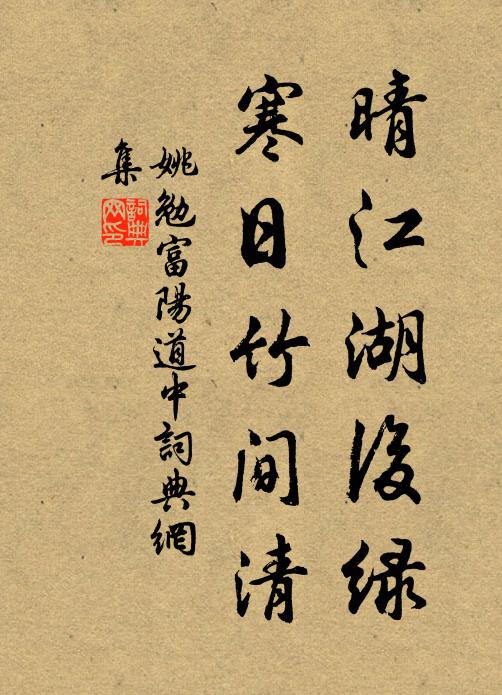 晴江湖後緑
寒日竹間清
姚勉富陽道中詞典網
集
詞典
网印